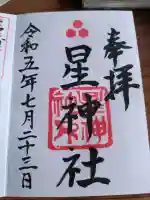 奉拝
星神社
令和五年七月二十三日